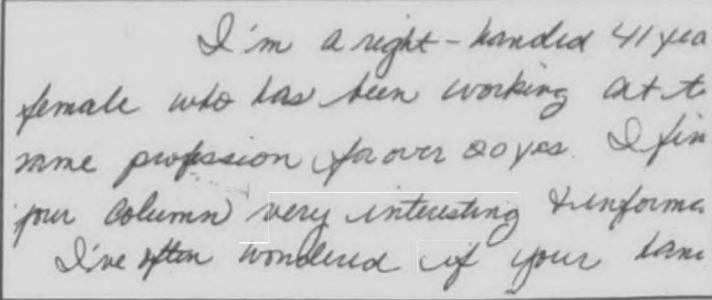 I'm a right-handed 41 yea
female who has been working at t
same profession for over 20 yrs. I fin
your column very interesting & informa
I've often wondered if your han